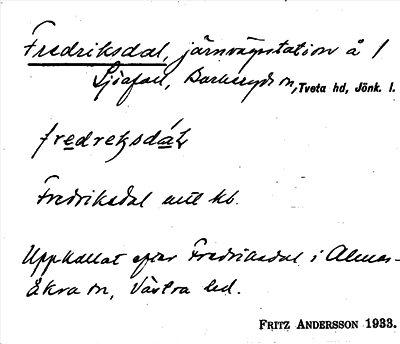 Fredriksdal, järnvägsstation å 1
Sjöafall, Barkeryds sn, Tveta hd, Jönk. l.
fredreksdál
Fredriksdal enl. kb.
Uppkallat efter Fredriksdal i Almes-
åkra sn, Västra hd.
FRITZ ANDERSSON 1933.